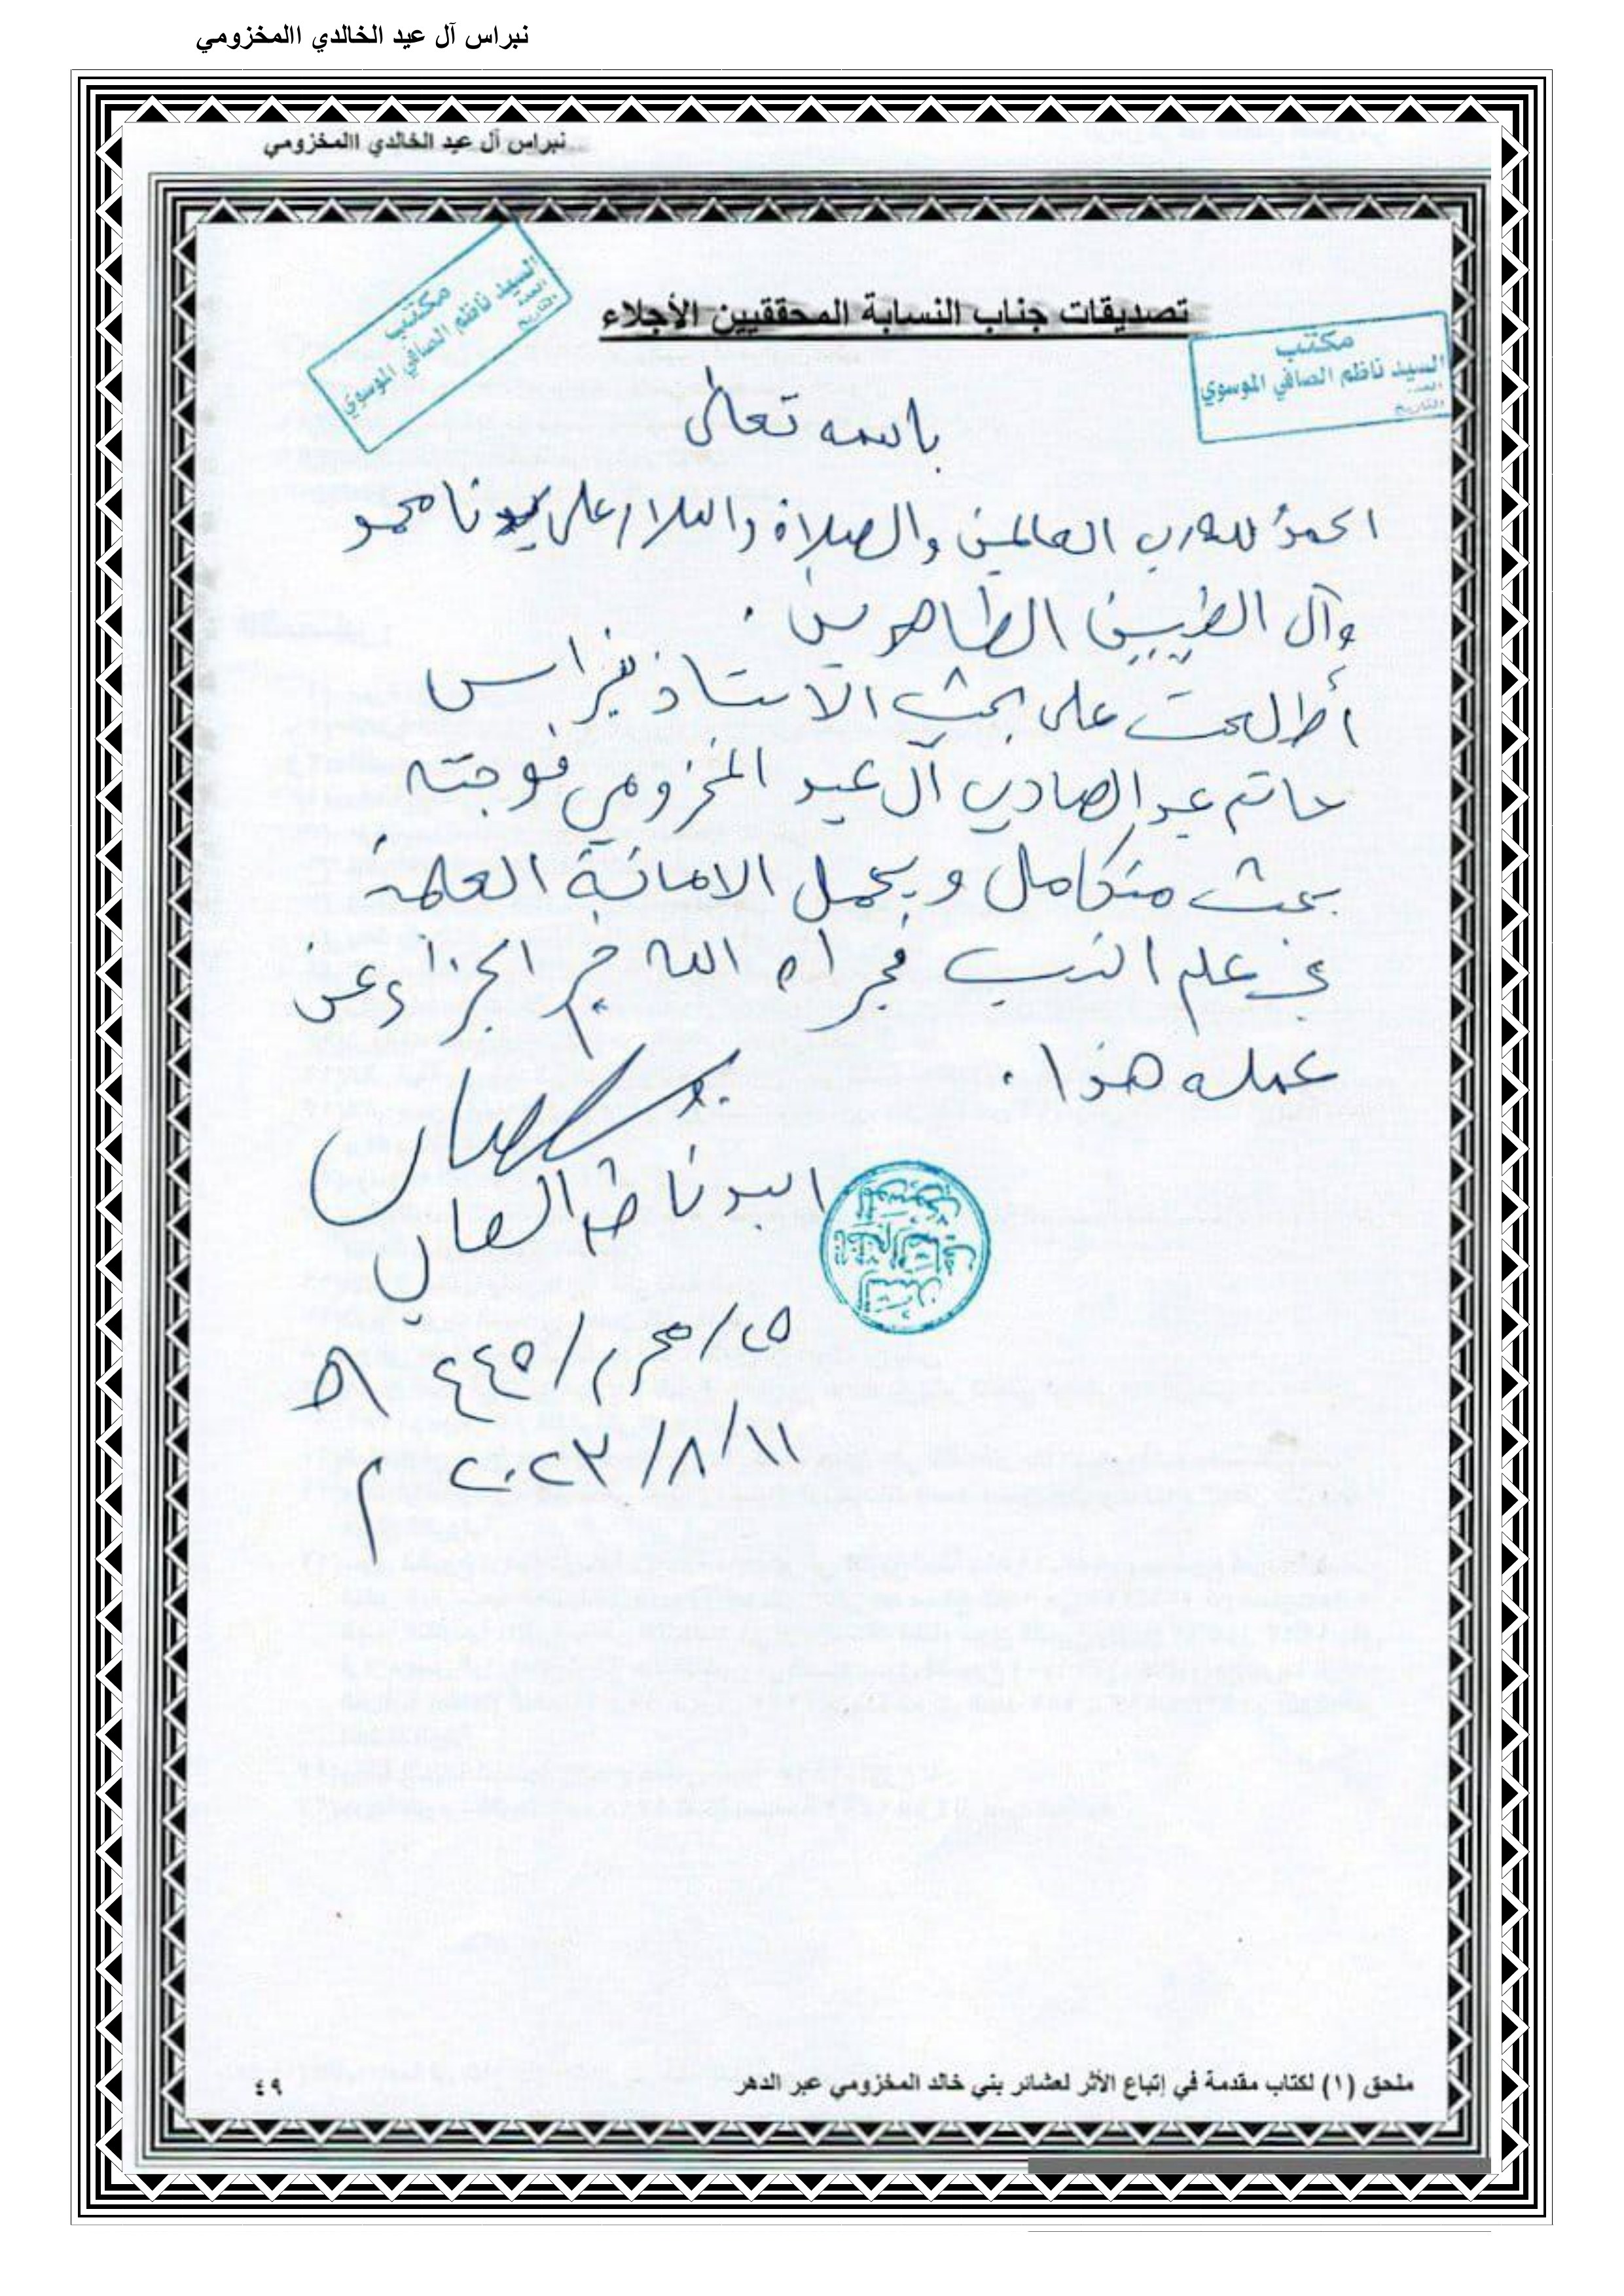 نبراس آل عيد الخالدي االمخزومي
نبراس آل عيد الخالدي االمخزومي
مكتب
السيد ناظم الصافي الموسوي
العدد
التاريخ
تصديقات جناب النسابة المحققيين الأجلاء
مكتب
السيد ناظم الصافي الموسوي
العدد
التاريخ
باسمه تعالى
الحمدُ لله رب العالمين والصلاة والسلام على سيدنا محمد
وآل الطيبين الطاهرين .
أطلعت على بحث الاستاذ نبراس
حاتم عبد الصاحب آل عيد المخزومي فوجته
بحث متكامل ويحمل الامانة العلمة
في علم النسب فجزاه الله خير الجزاء عن
عمله هذا .
السيد ناظم الصافي
٢٥/محرم/١٤٤٥ هـ
١١/٨/٢٠٢٣ م
ملحق (١) لكتاب مقدمة في إتباع الأثر لعشائر بني خالد المخزومي عبر الدهر
٤٩